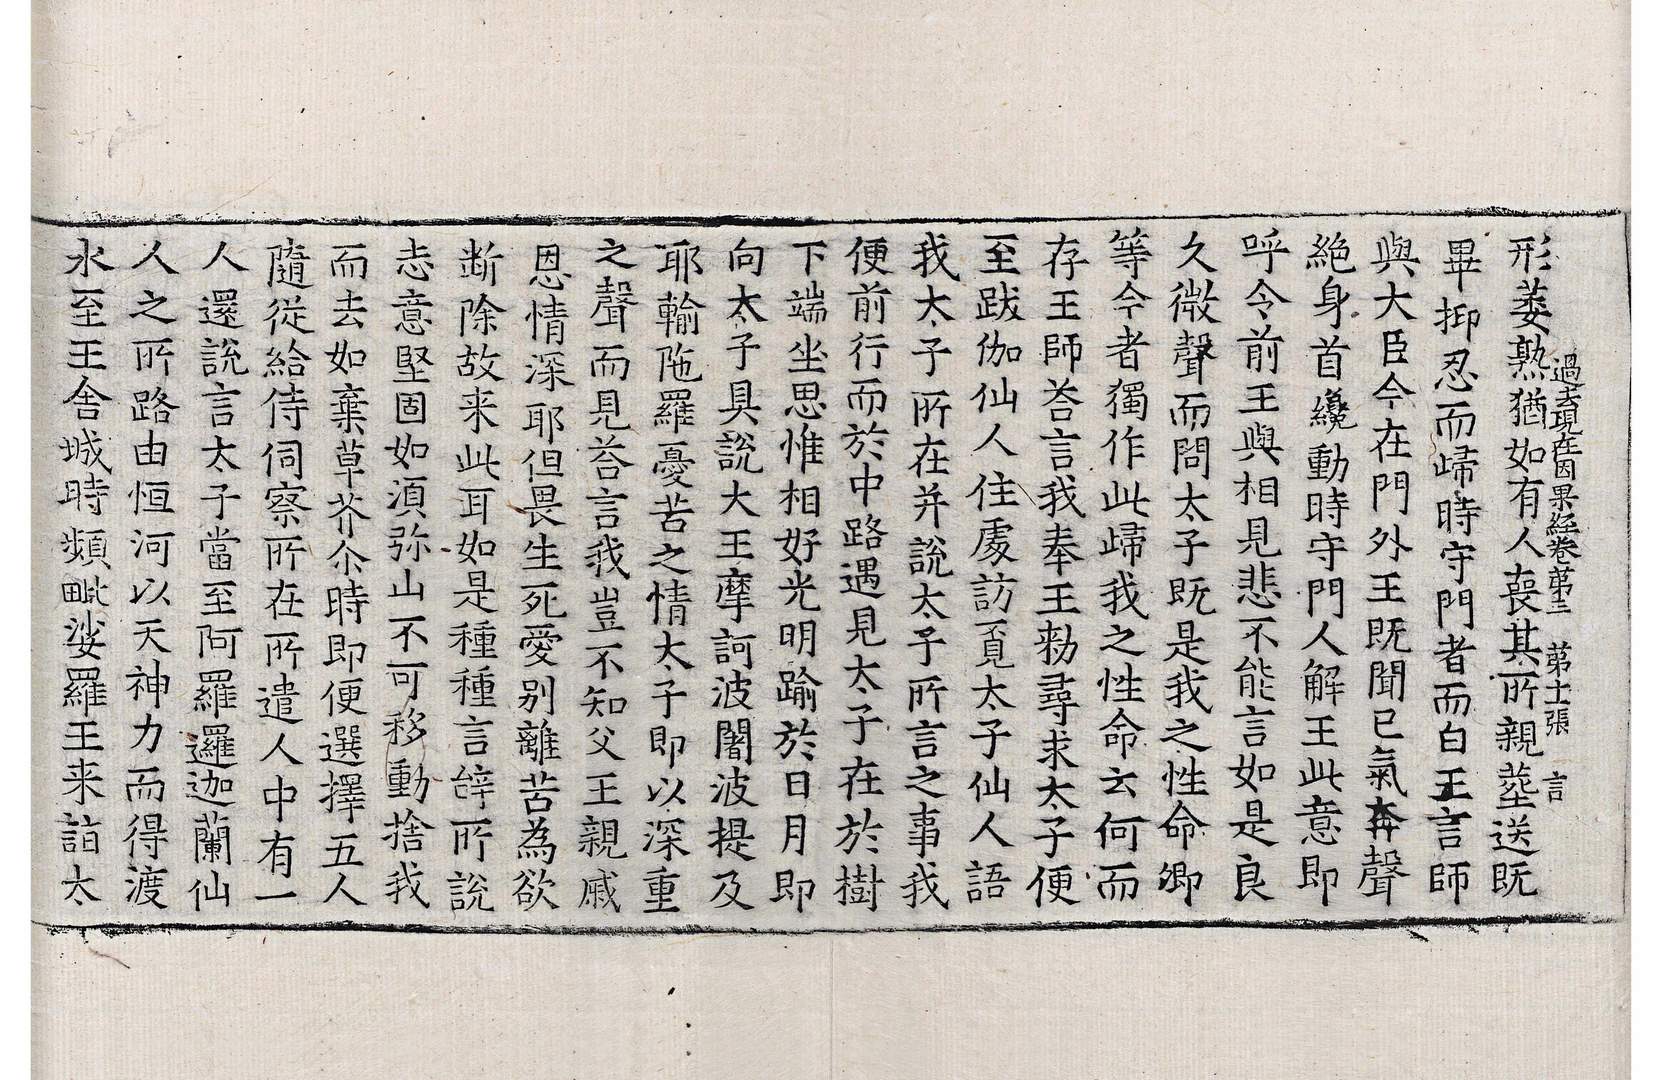 過去現在因果經卷第三　第十張　言
形萎熟猶如有人喪其所親塟送既
畢抑忍而歸時守門者而白王言師
與大臣今在門外王既聞已氣奔聲
絶身首纔動時守門人解王此意即
呼令前王與相見悲不能言如是良
久微聲而問太子既是我之性命卿
等今者獨作此歸我之性命云何而
存王師荅言我奉王勑尋求太子便
至跋伽仙人住處訪覔太子仙人語
我太子所在并說太子所言之事我
便前行而於中路遇見太子在於樹
下端坐思惟相好光明踰於日月即
向太子具說大王摩訶波闍波提及
耶輸陁羅憂苦之情太子即以深重
之聲而見荅言我豈不知父王親戚
恩情深耶但畏生死愛别離苦為欲
断除故来此耳如是種種言辝所說
志意堅固如湏弥山不可移動捨我
而去如棄草芥尒時即便選擇五人
隨從給侍伺察所在所遣人中有一
人還說言太子當至阿羅邏迦蘭仙
人之所路由恒河以天神力而得渡
水至王舍城時頻毗娑羅王来詣太